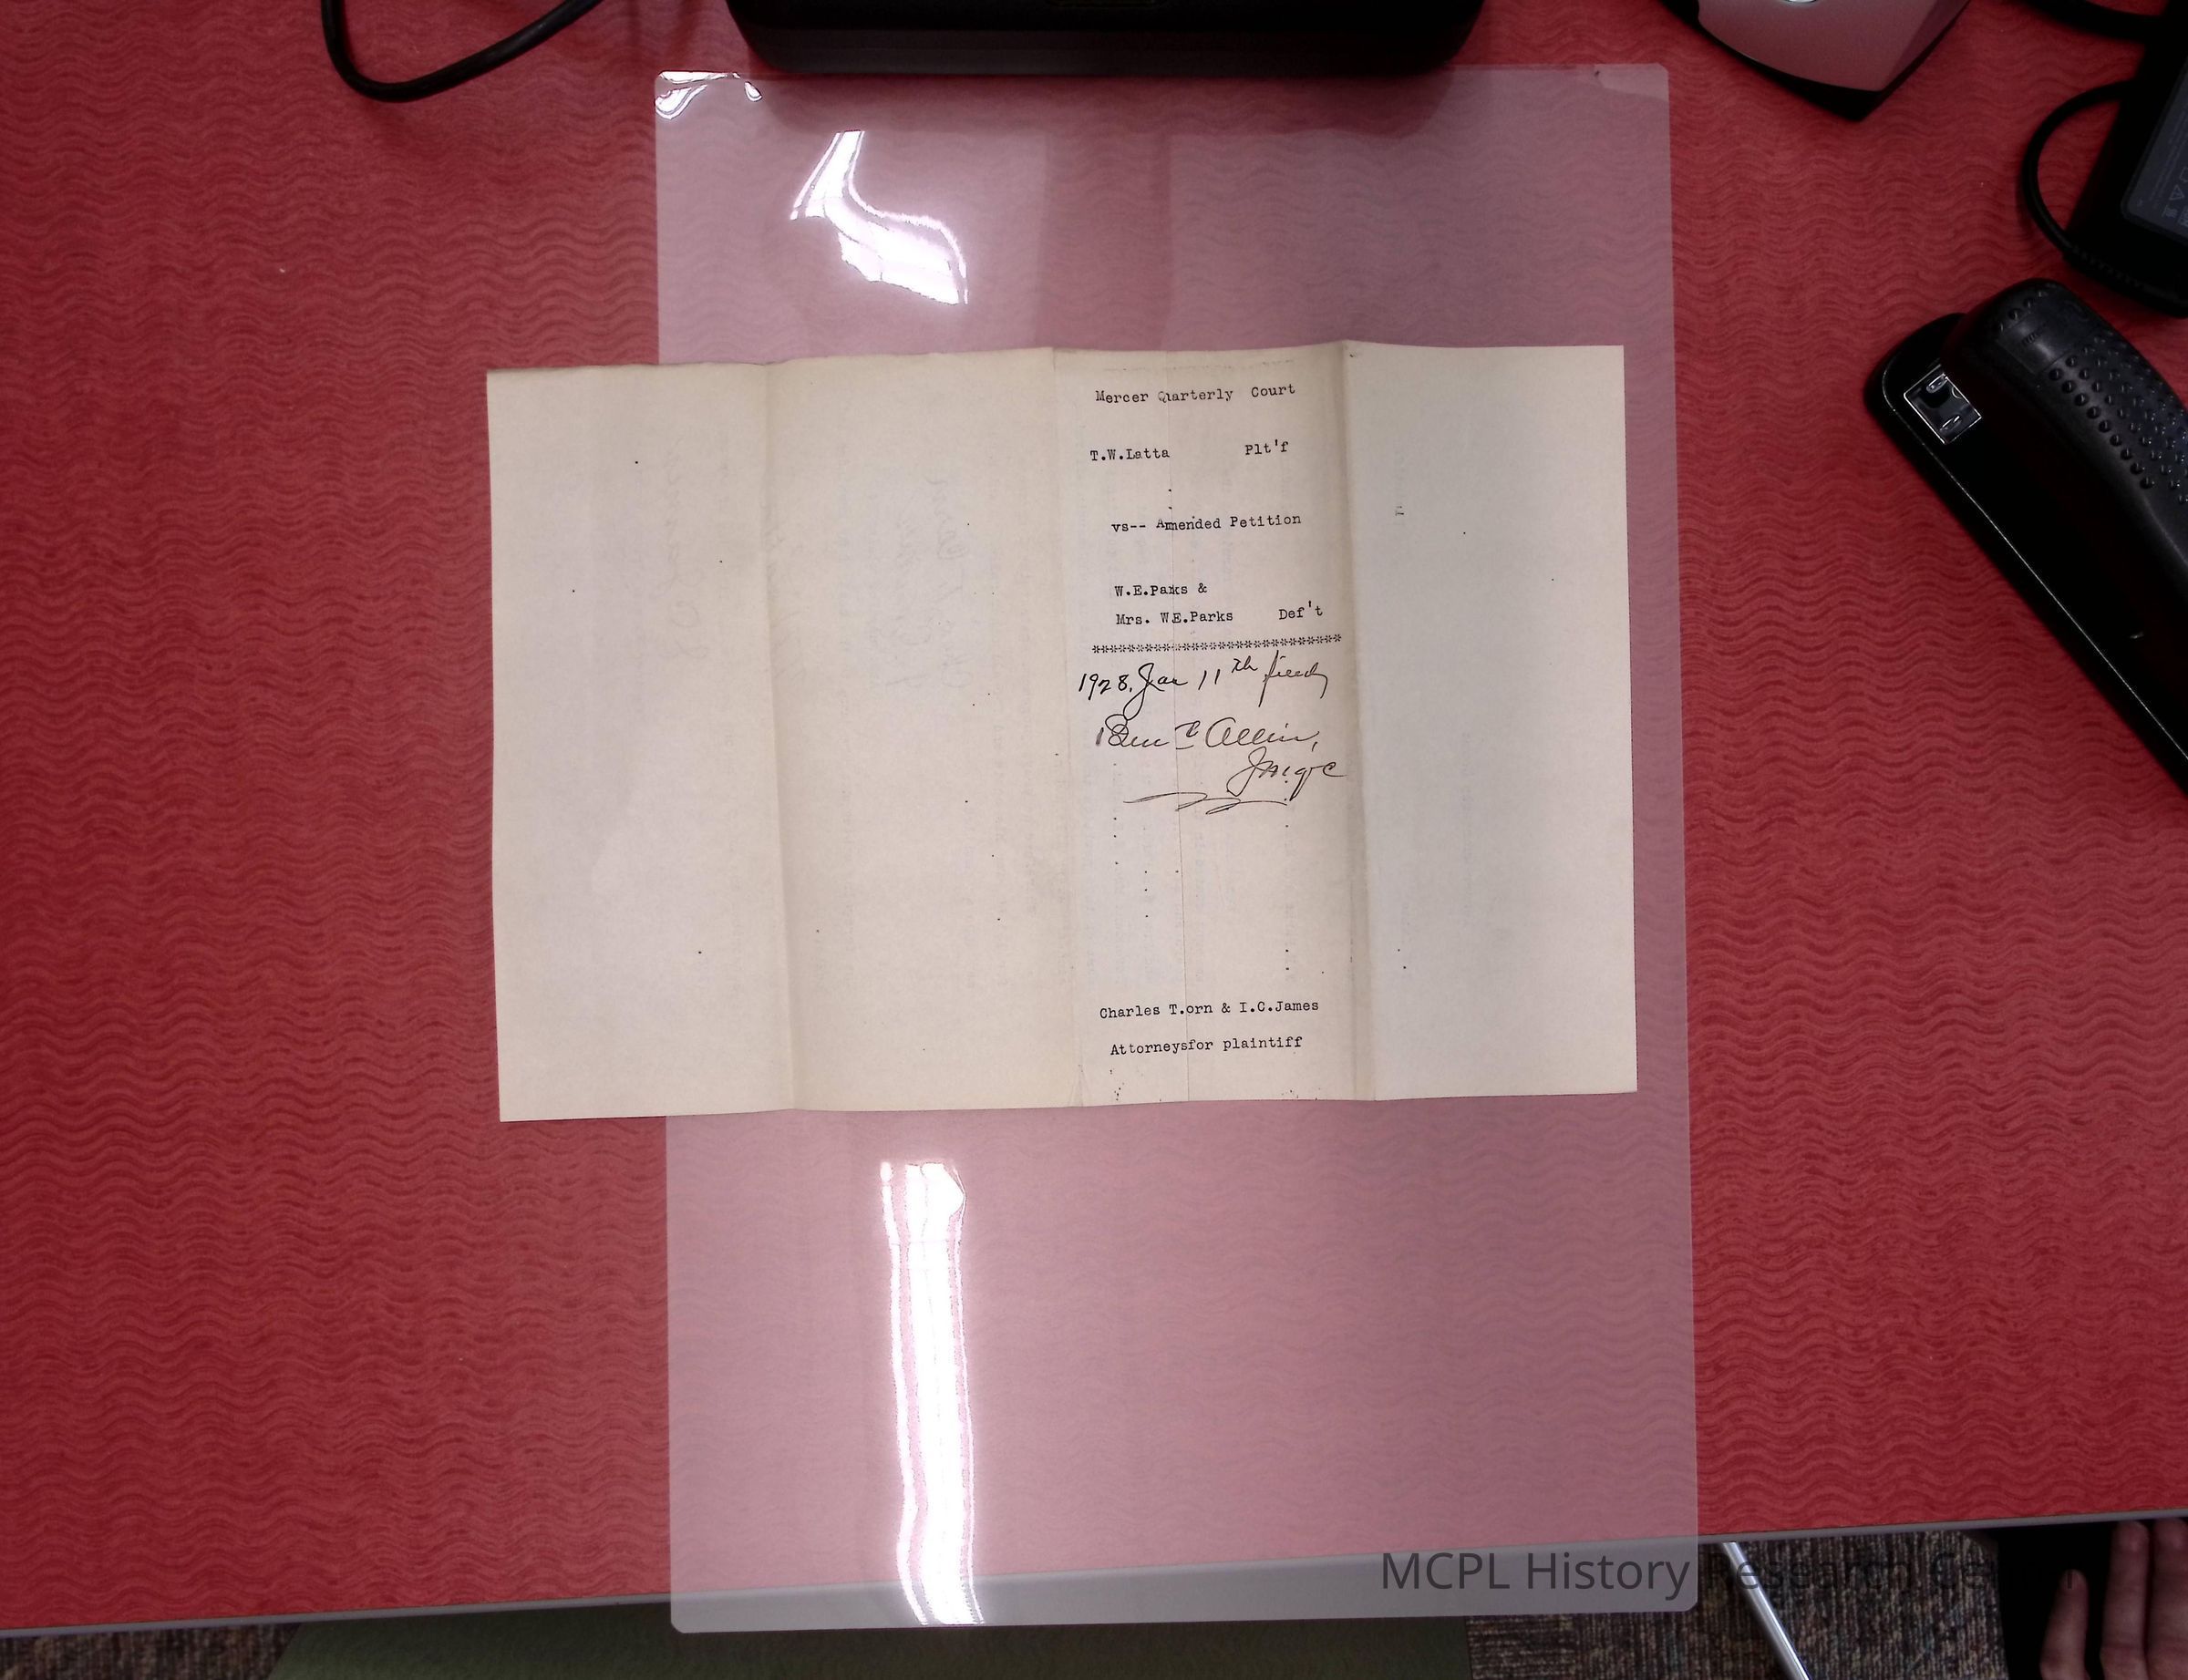 Mercer Quarterly Court
T.W.Latta Plt'f
vs-- Amended Petition
W.E.Parks &
Mrs. W.E.Parks Def't
****************************
1928. Jan 11th filed
Ben C Allin,
Judge
Charles T.orn & I.C.James
Attorneysfor plaintiff
MCPL History Research Center